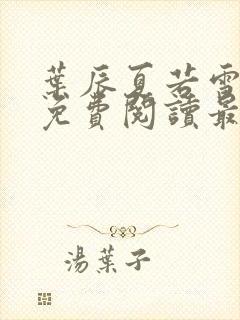 葉辰夏若雪
免費閱讀最
湯葉子